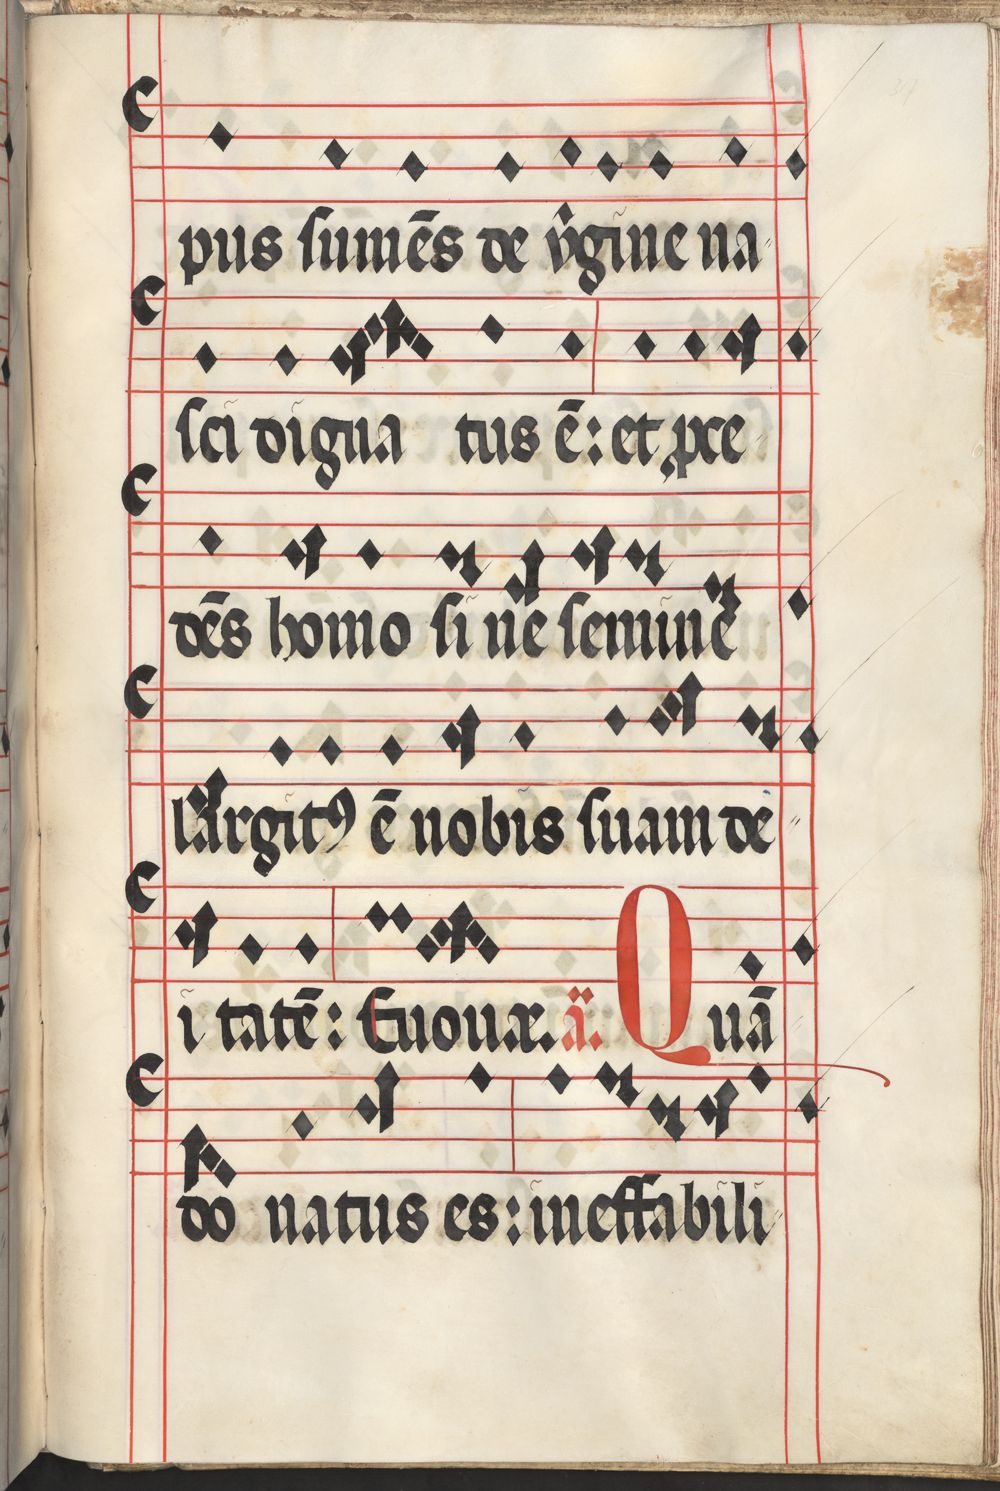 pus sumēs de v̓gine na˶
sci digna tus ē: et ꝓce˶
dēs homo si nē seminē
largitꝰ ē nobis suam de˶
i tatē: Euouæ. ā. Quā
do natus es: ineffabili˶